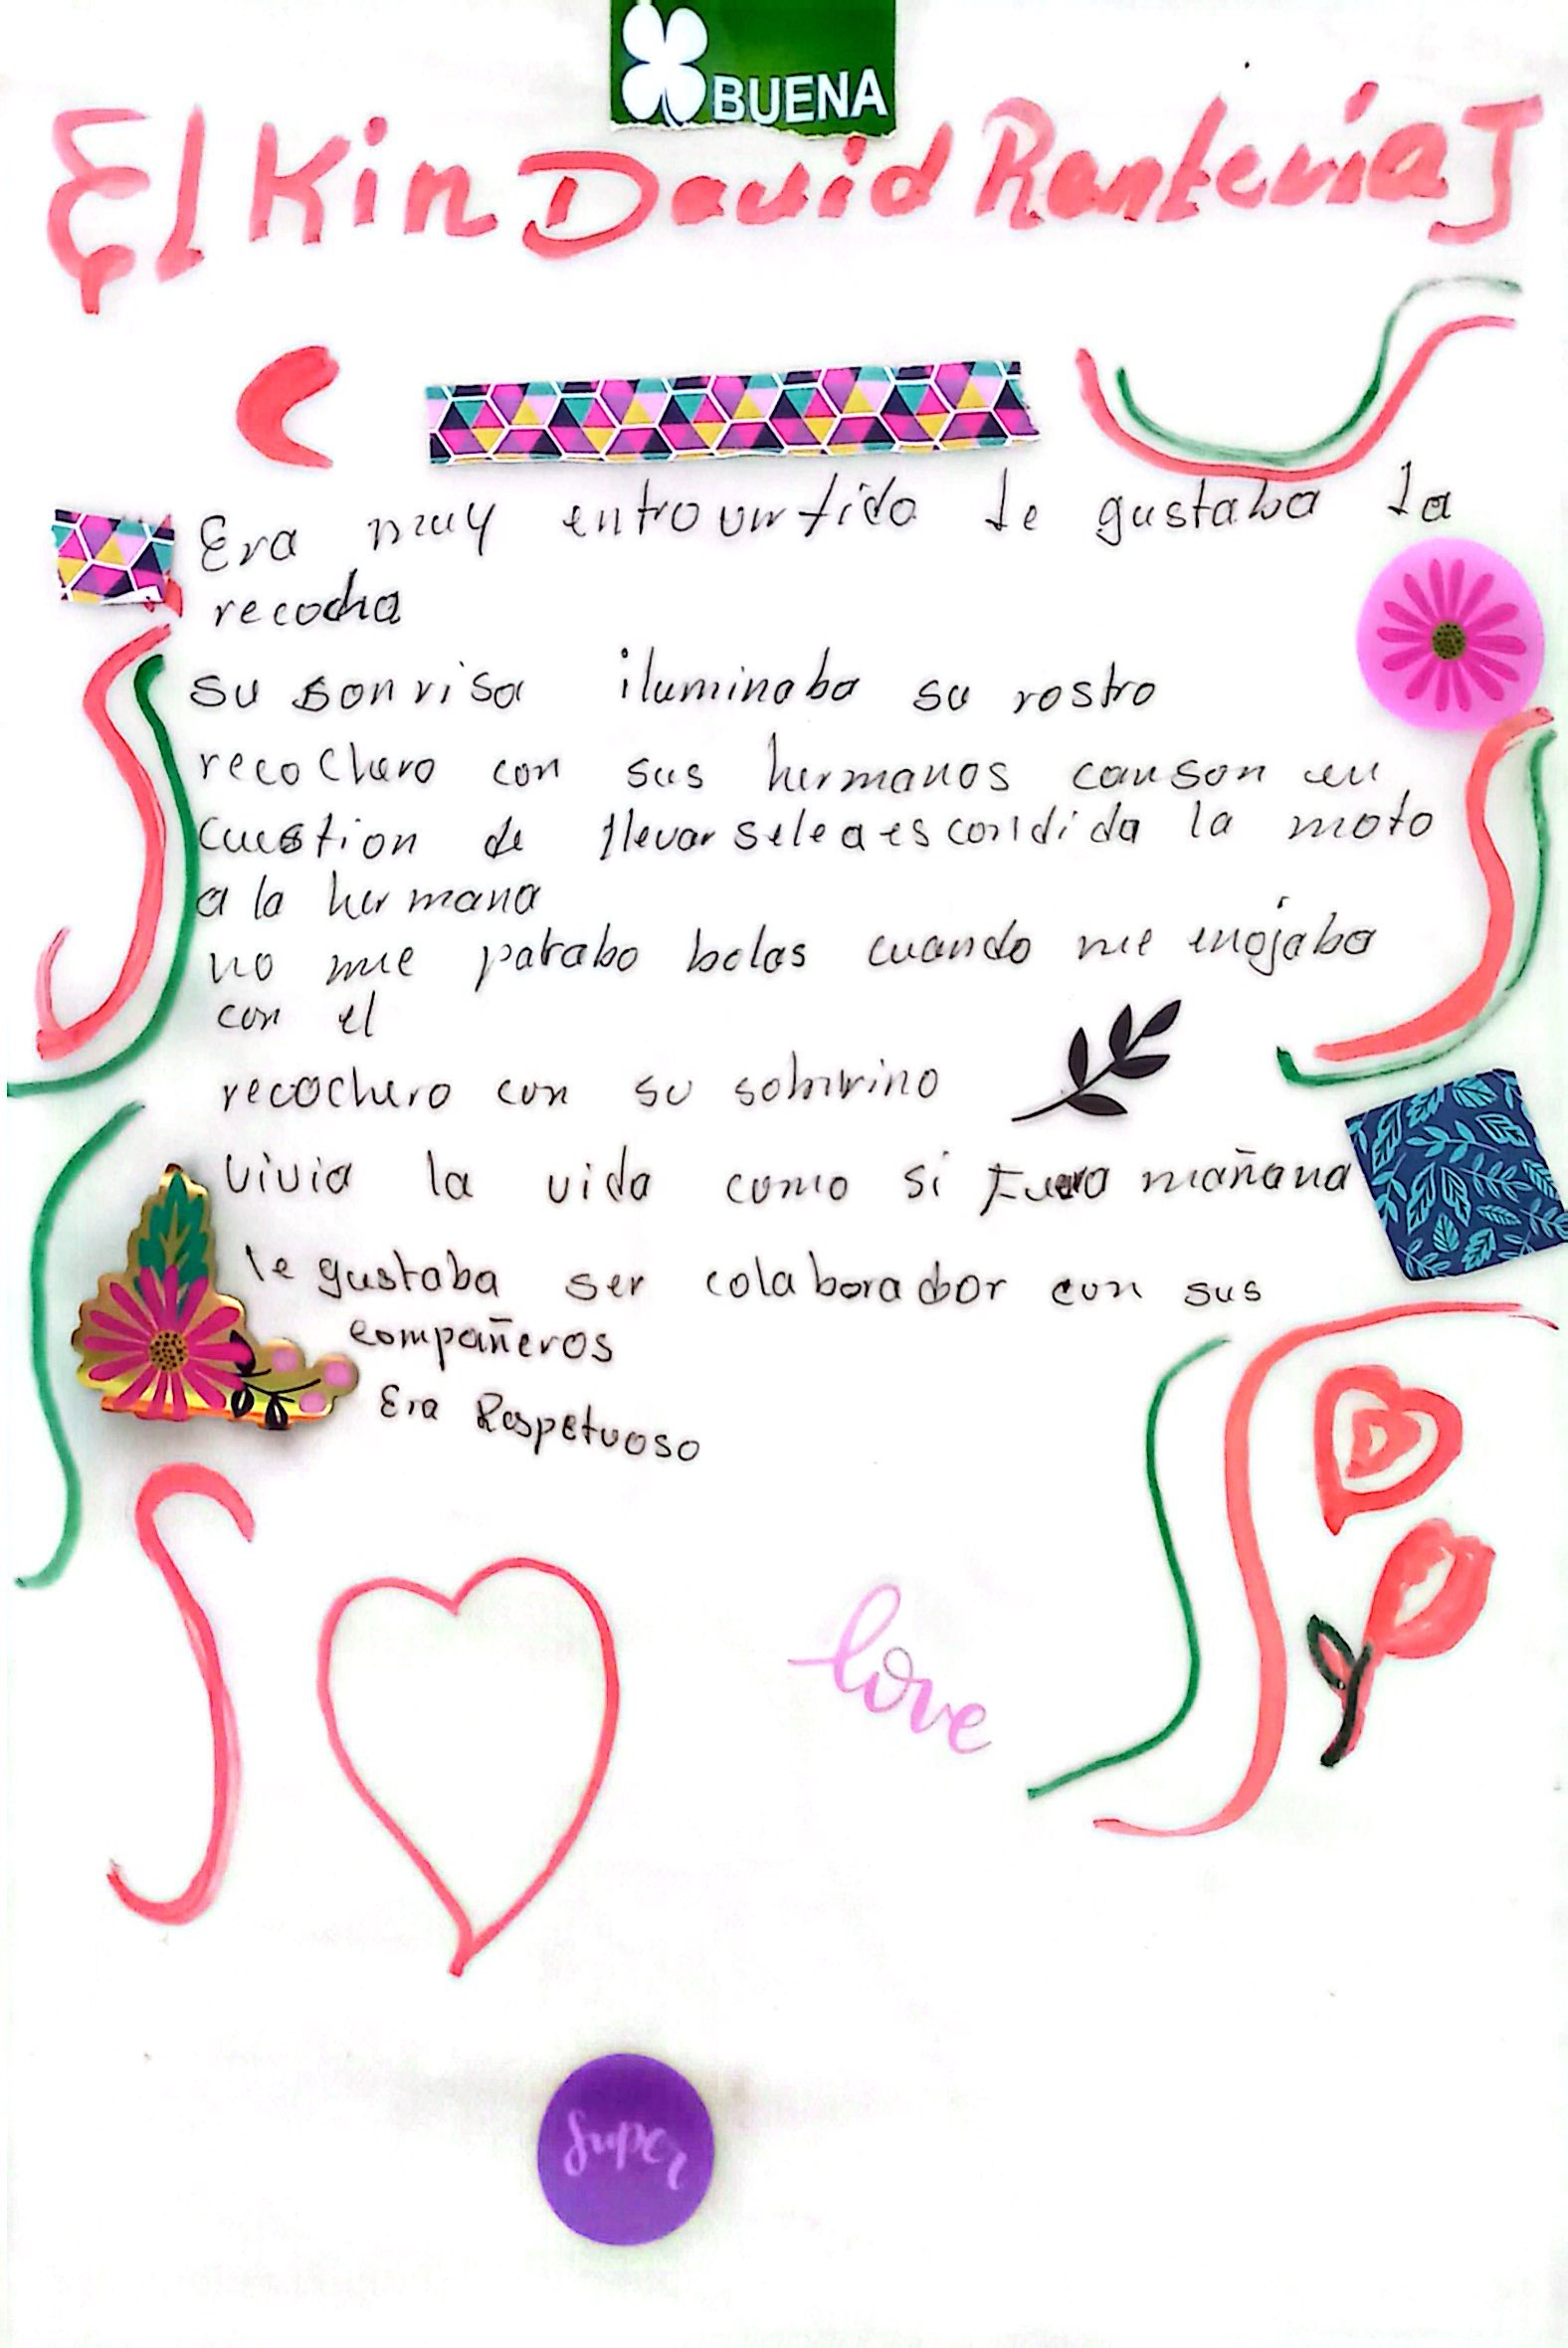 BUENA
ElKin David Rentería J
Era muy entrovertido le gustaba la
recocha
su sonrisa iluminaba su rostro
recochero con sus hermanos causon en
Cuestion de llevarselea escondida la moto
a la hermana
no me paraba bolas cuando me enojaba
con el
recochero con su sobrino
vivia la vida como si Fuera mañana
le gustaba ser colaborador con sus
compañeros
Era Respetuoso
love
super